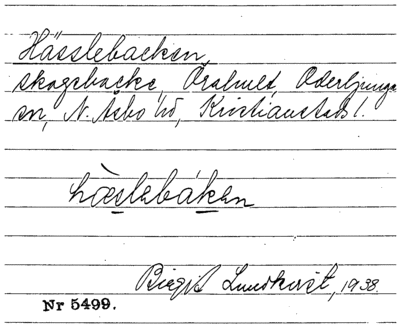 Hässlebacken,
skogsbacke, Örahult, Oderljunga
sn, N. Åsbo hd, Kristianstads l.
hæ̀slebáken
Birgit Lundkvist, 1938.
Nr 5499.